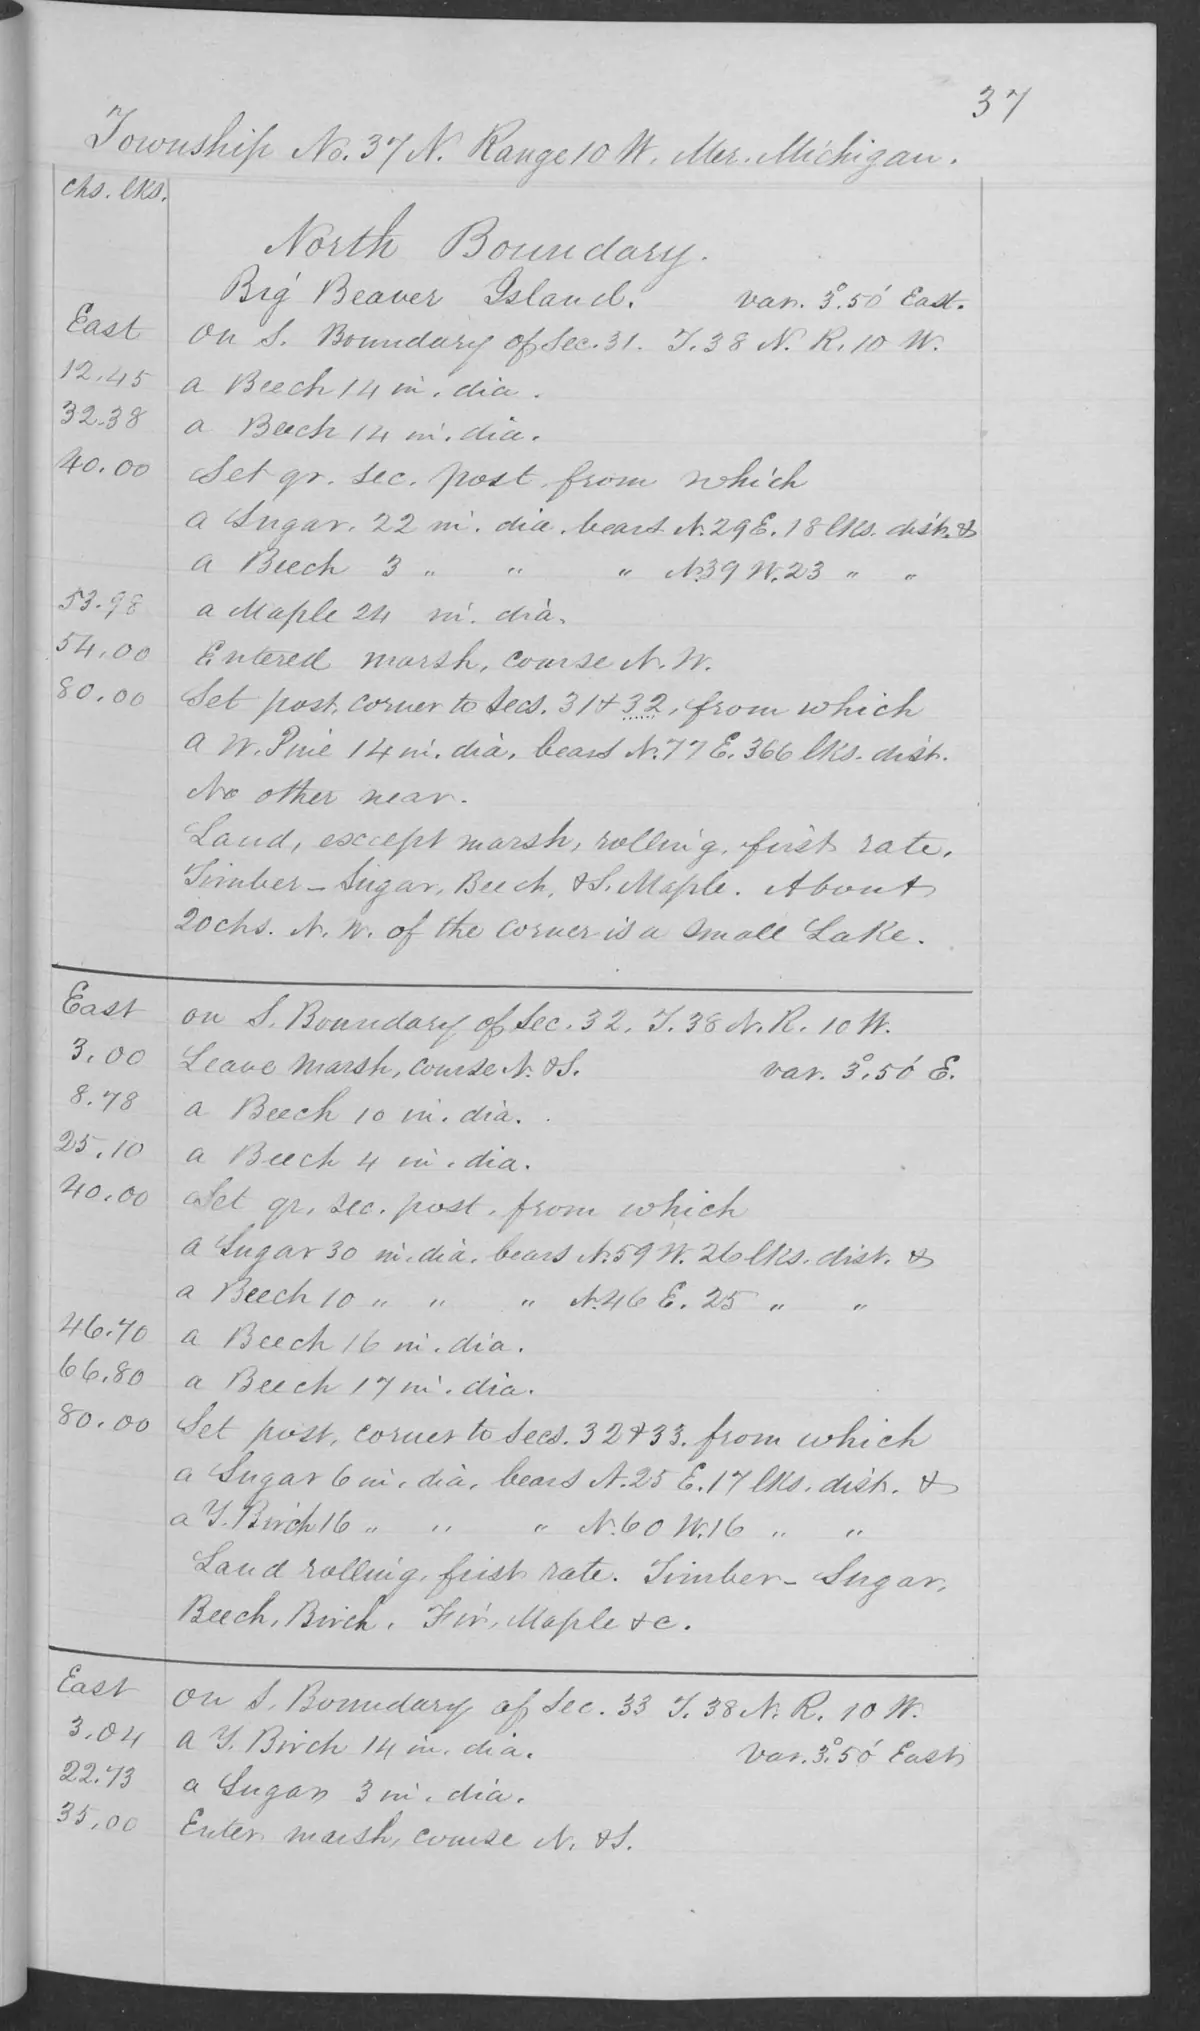 37
Township No. 37 N. Range 10 W. Mer. Michigan.
chs. lks.
North Boundary.
Big Beaver Island. Var. 3°.50' East.
East On S. Boundary of Sec. 31. T. 38 N. R. 10 W.
12.45 a Beech 14 in. dia.
32.38 a Beech 14 in. dia.
40.00 Set qr. sec. post from which
a Sugar. 22 in. dia. bears N. 29 E. 18 lks. dist. &
a Beech 3 " " " N. 39 W. 23 " "
53.98 a Maple 24 in. dia.
54.00 Entered marsh, course N. W.
80.00 Set post, corner to Secs. 31 & 32, from which
a W. Pine 14 in. dia. bears N. 77 E. 366 lks. dist.
No other near.
Land, except marsh, rolling, first rate.
Timber – Sugar, Beech, & S. Maple. About
20 chs. N. W. of the corner is a small Lake.
East on S. Boundary of Sec. 32. T. 38 N. R. 10 W.
3.00 Leave marsh, course N. & S. var. 3°.50' E.
8.78 a Beech 10 in. dia.
25.10 a Beech 4 in. dia.
40.00 Set qr. sec. post, from which
a Sugar 30 in. dia. bears N. 59 W. 26 lks. dist. &
a Beech 10 " " " N. 46 E. 25 " "
46.70 a Beech 16 in. dia.
66.80 a Beech 17 in. dia.
80.00 Set post, corner to Secs. 32 & 33. from which
a Sugar 6 in. dia. bears N. 25 E. 17 lks. dist. &
a Y. Birch 16 " " " N. 60 W. 16 " "
Land rolling, first rate. Timber – Sugar,
Beech, Birch, Fir, Maple &c.
East On S. Boundary of Sec. 33 T. 38 N. R. 10 W.
3.04 a Y. Birch 14 in. dia. Var. 3°.50' East
22.73 a Sugar 3 in. dia.
35.00 Enter marsh, course N. & S.